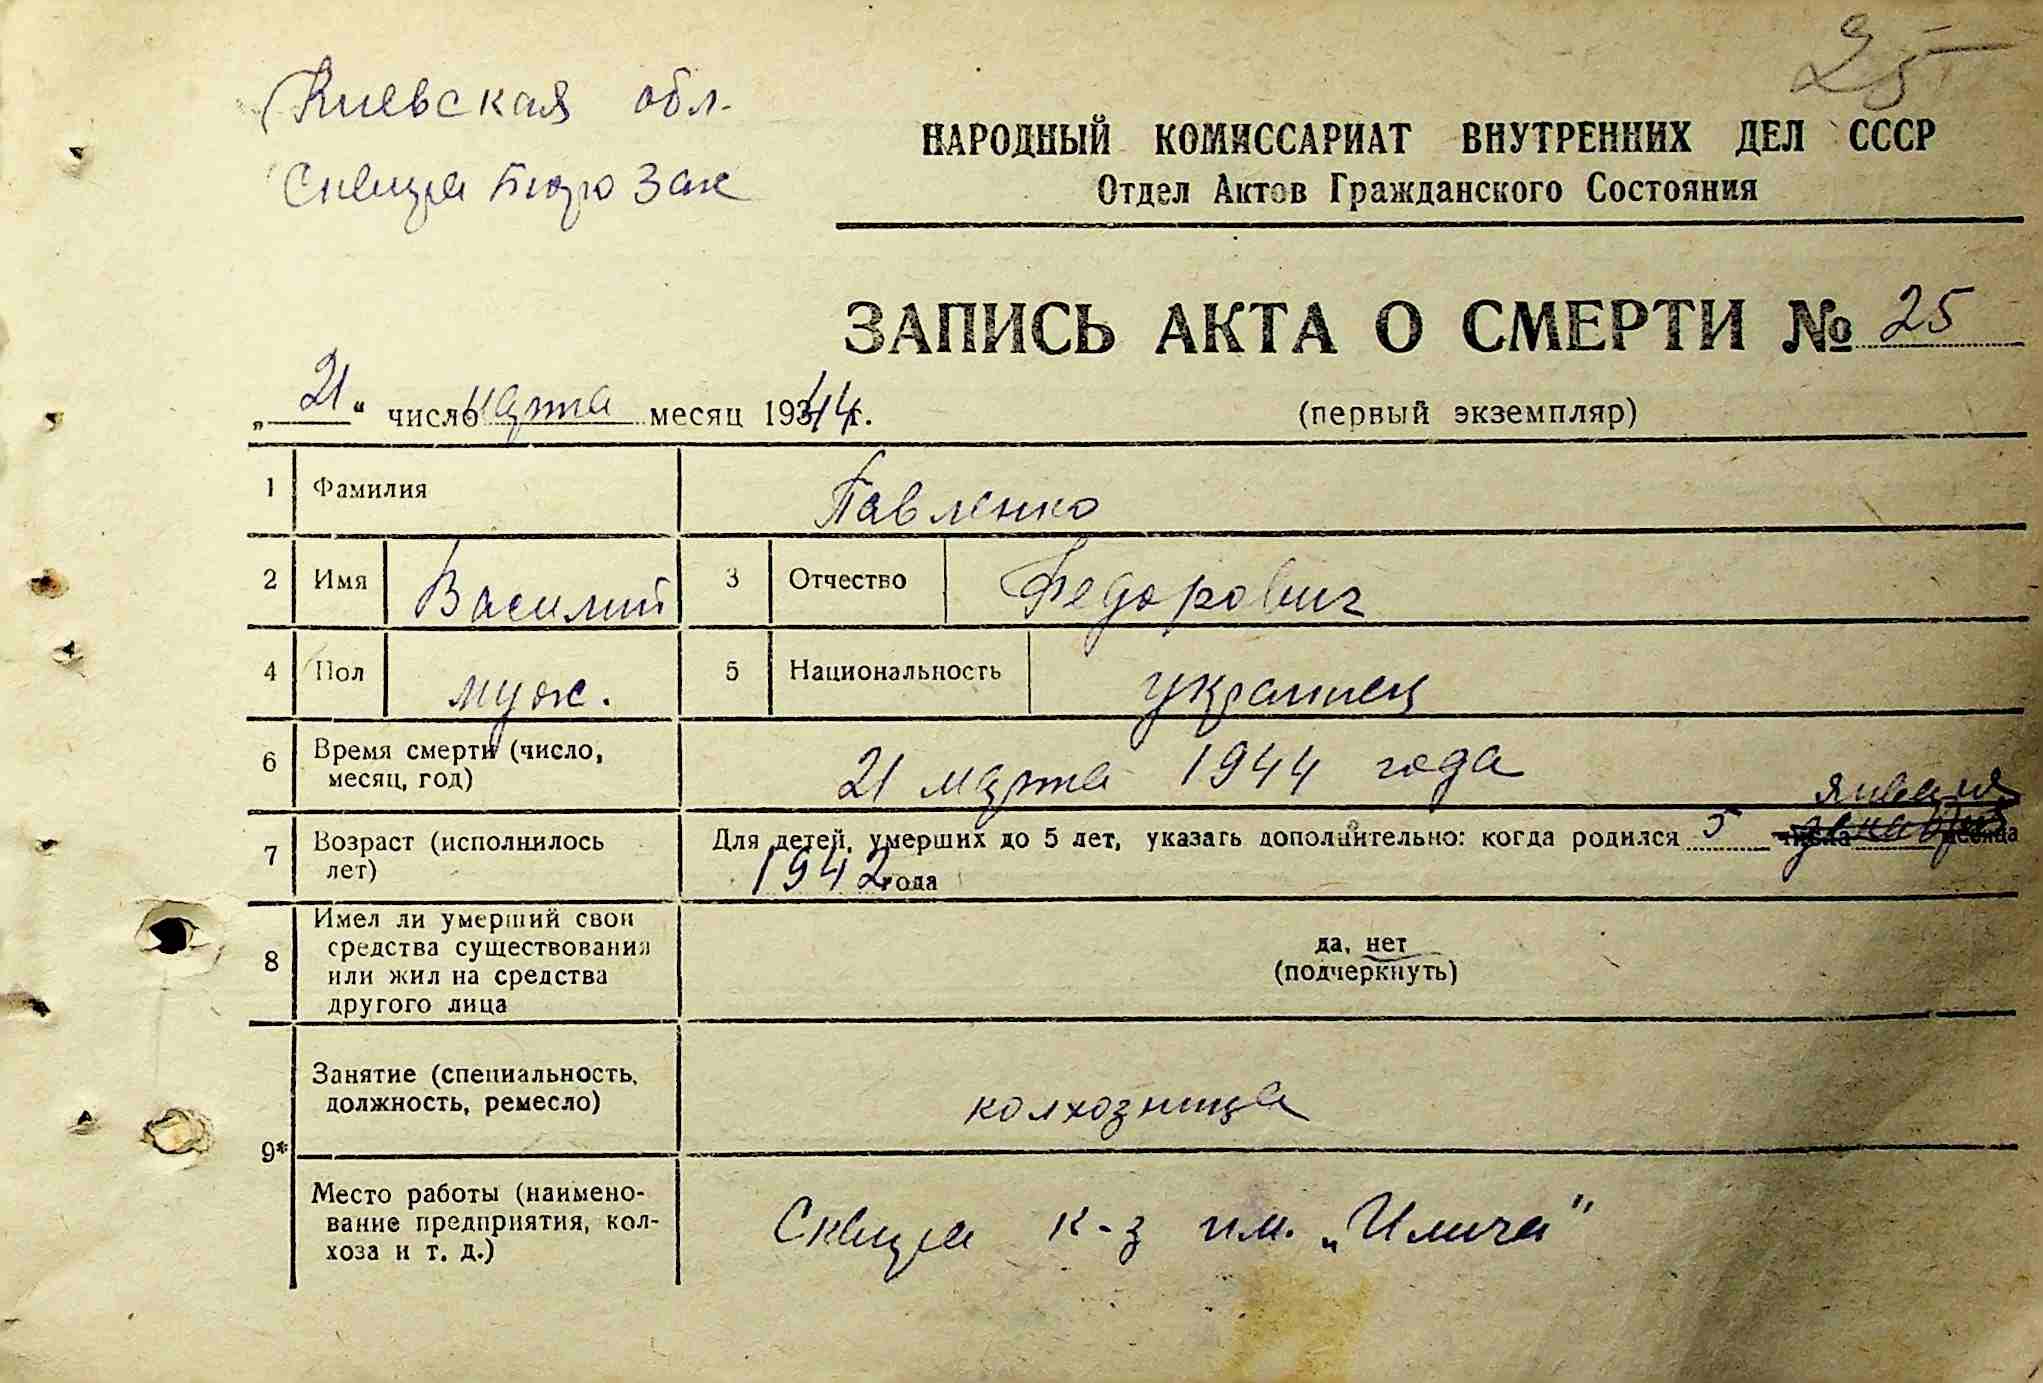 25
Киевская обл.
Сквира Бюро Загс
НАРОДНЫЙ КОМИССАРИАТ ВНУТРЕННИХ ДЕЛ СССР
Отдел Актов Гражданского Состояния
ЗАПИСЬ АКТА О СМЕРТИ № 25
„21“ число марта месяц 1944 г.
(первый экземпляр)
1 Фамилия Павленко
2 Имя Василий 3 Отчество Федорович
4 Пол муж. 5 Национальность украинец
6 Время смерти (число, месяц, год) 21 марта 1944 года
января
7 Возраст (исполнилось лет) Для детей, умерших до 5 лет, указать дополнительно: когда родился 5 числа декабря месяца
1942 года
8 Имел ли умерший свои средства существования или жил на средства другого лица
да, нет
(подчеркнуть)
9* Занятие (специальность, должность, ремесло) колхозница
Место работы (наименование предприятия, колхоза и т. д.) Сквира к-з им. „Илича"